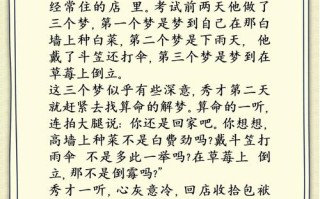 经常住的店 里。考试前两天他做了
三个梦,第一个梦是梦到自己在那白
墙上种白菜,第二个梦是下雨天, 他
戴了斗笠还打伞,第三个梦是梦到在
草莓上倒立。
这三个梦似乎有些深意,秀才第二天
就赶紧去找算命的解梦。算命的一听,
连拍大腿说:你还是回家吧。你想想,
高墙上种菜不是白费劲吗?戴斗笠打
雨伞 不是多此一举吗?在草莓上 倒
立,那不是倒霉吗?”
秀才一听,心灰意冷,回店收拾包袱